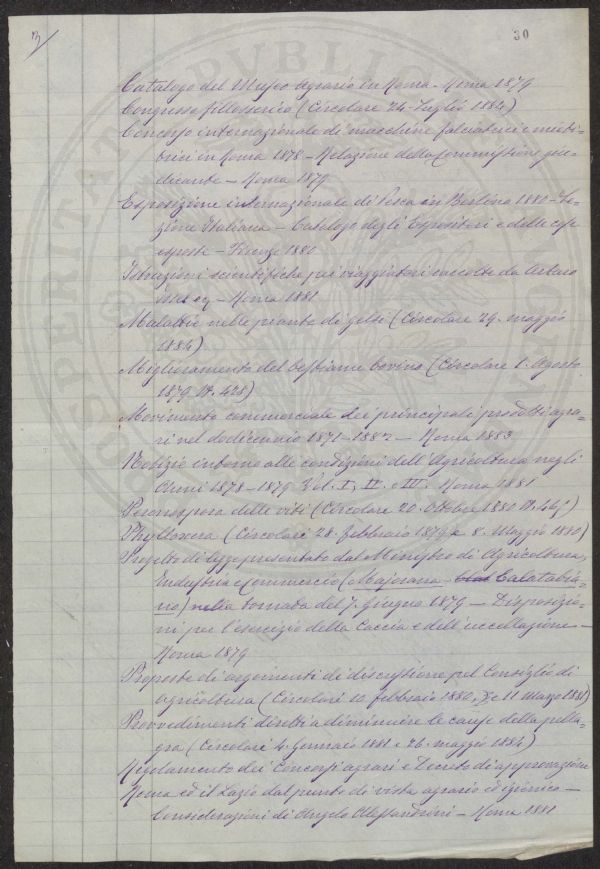 30
Catalogo del Museo Agrario in Roma - Roma 1879
Congresso fillosserico (Circolare 24. Luglio 1884)
Concorso internazionale di macchine falciatrici e mieti-
trici in Roma 1878 - Relazione della Commissione giu-
dicante - Roma 1879
Esposizione internazionale di Pesca in Berlino 1880 - Se-
zione Italiana - Catalogo degli Espositori e delle cose
esposte - Firenze 1880
Istruzioni scientifiche pei viaggiatori raccolte da Arturo
Issel - Roma 1881
Malattie nelle piante di gelsi (Circolare 29. maggio
1884)
Miglioramento del bestiame bovino (Circolare 1. Agosto
1879 N. 428)
Movimento commerciale dei principali prodotti agra-
ri nel dodicennio 1871-1882 - Roma 1883
Notizie intorno alle condizioni dell'Agricoltura negli
Anni 1878-1879 Vol. I, II e III. Roma 1881
Peronospora delle viti (Circolare 20. Ottobre 1880 N.
Phylloxera (Circolari 28. febbraio 1879 e 8. Maggio 1880)
Progetto di legge presentato dal Ministro di Agricoltura,
Industria e Commercio (Majorana - Calatabia-
no) nella tornata del 7. Giugno 1879 - Disposizio-
ni per l'esercizio della Caccia e dell'uccellazione -
Roma 1879
Proposte di argomenti di discussione pel Consiglio di
agricoltura (Circolari 10 febbraio 1880, e 11 Marzo 1881)
Provvedimenti diretti a diminuire le cause della pella-
gra (Circolare 4. Gennaio 1881 e 26. maggio 1884)
Regolamento dei Concorsi agrari e Decreto di approvazione
Roma ed il Lazio dal punto di vista agrario ed igienico -
Considerazioni di Angelo Alessandrini - Roma 1881